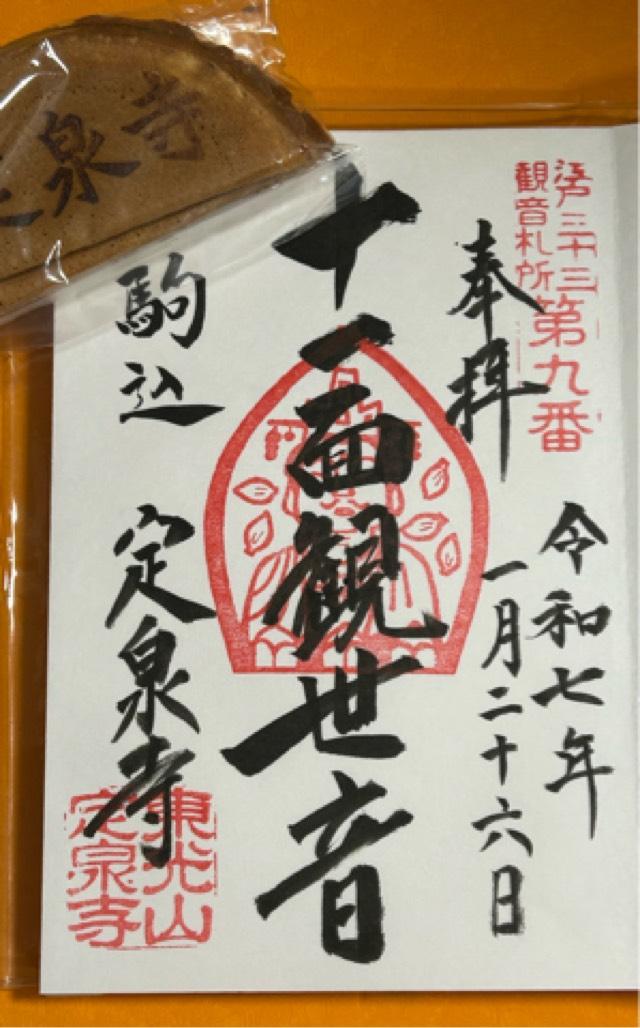 定泉寺
江戸三十三
観音札所
第九番
奉拝
令和七年
一月二十六日
十一面観世音
駒込 定泉寺
東光山
定泉寺